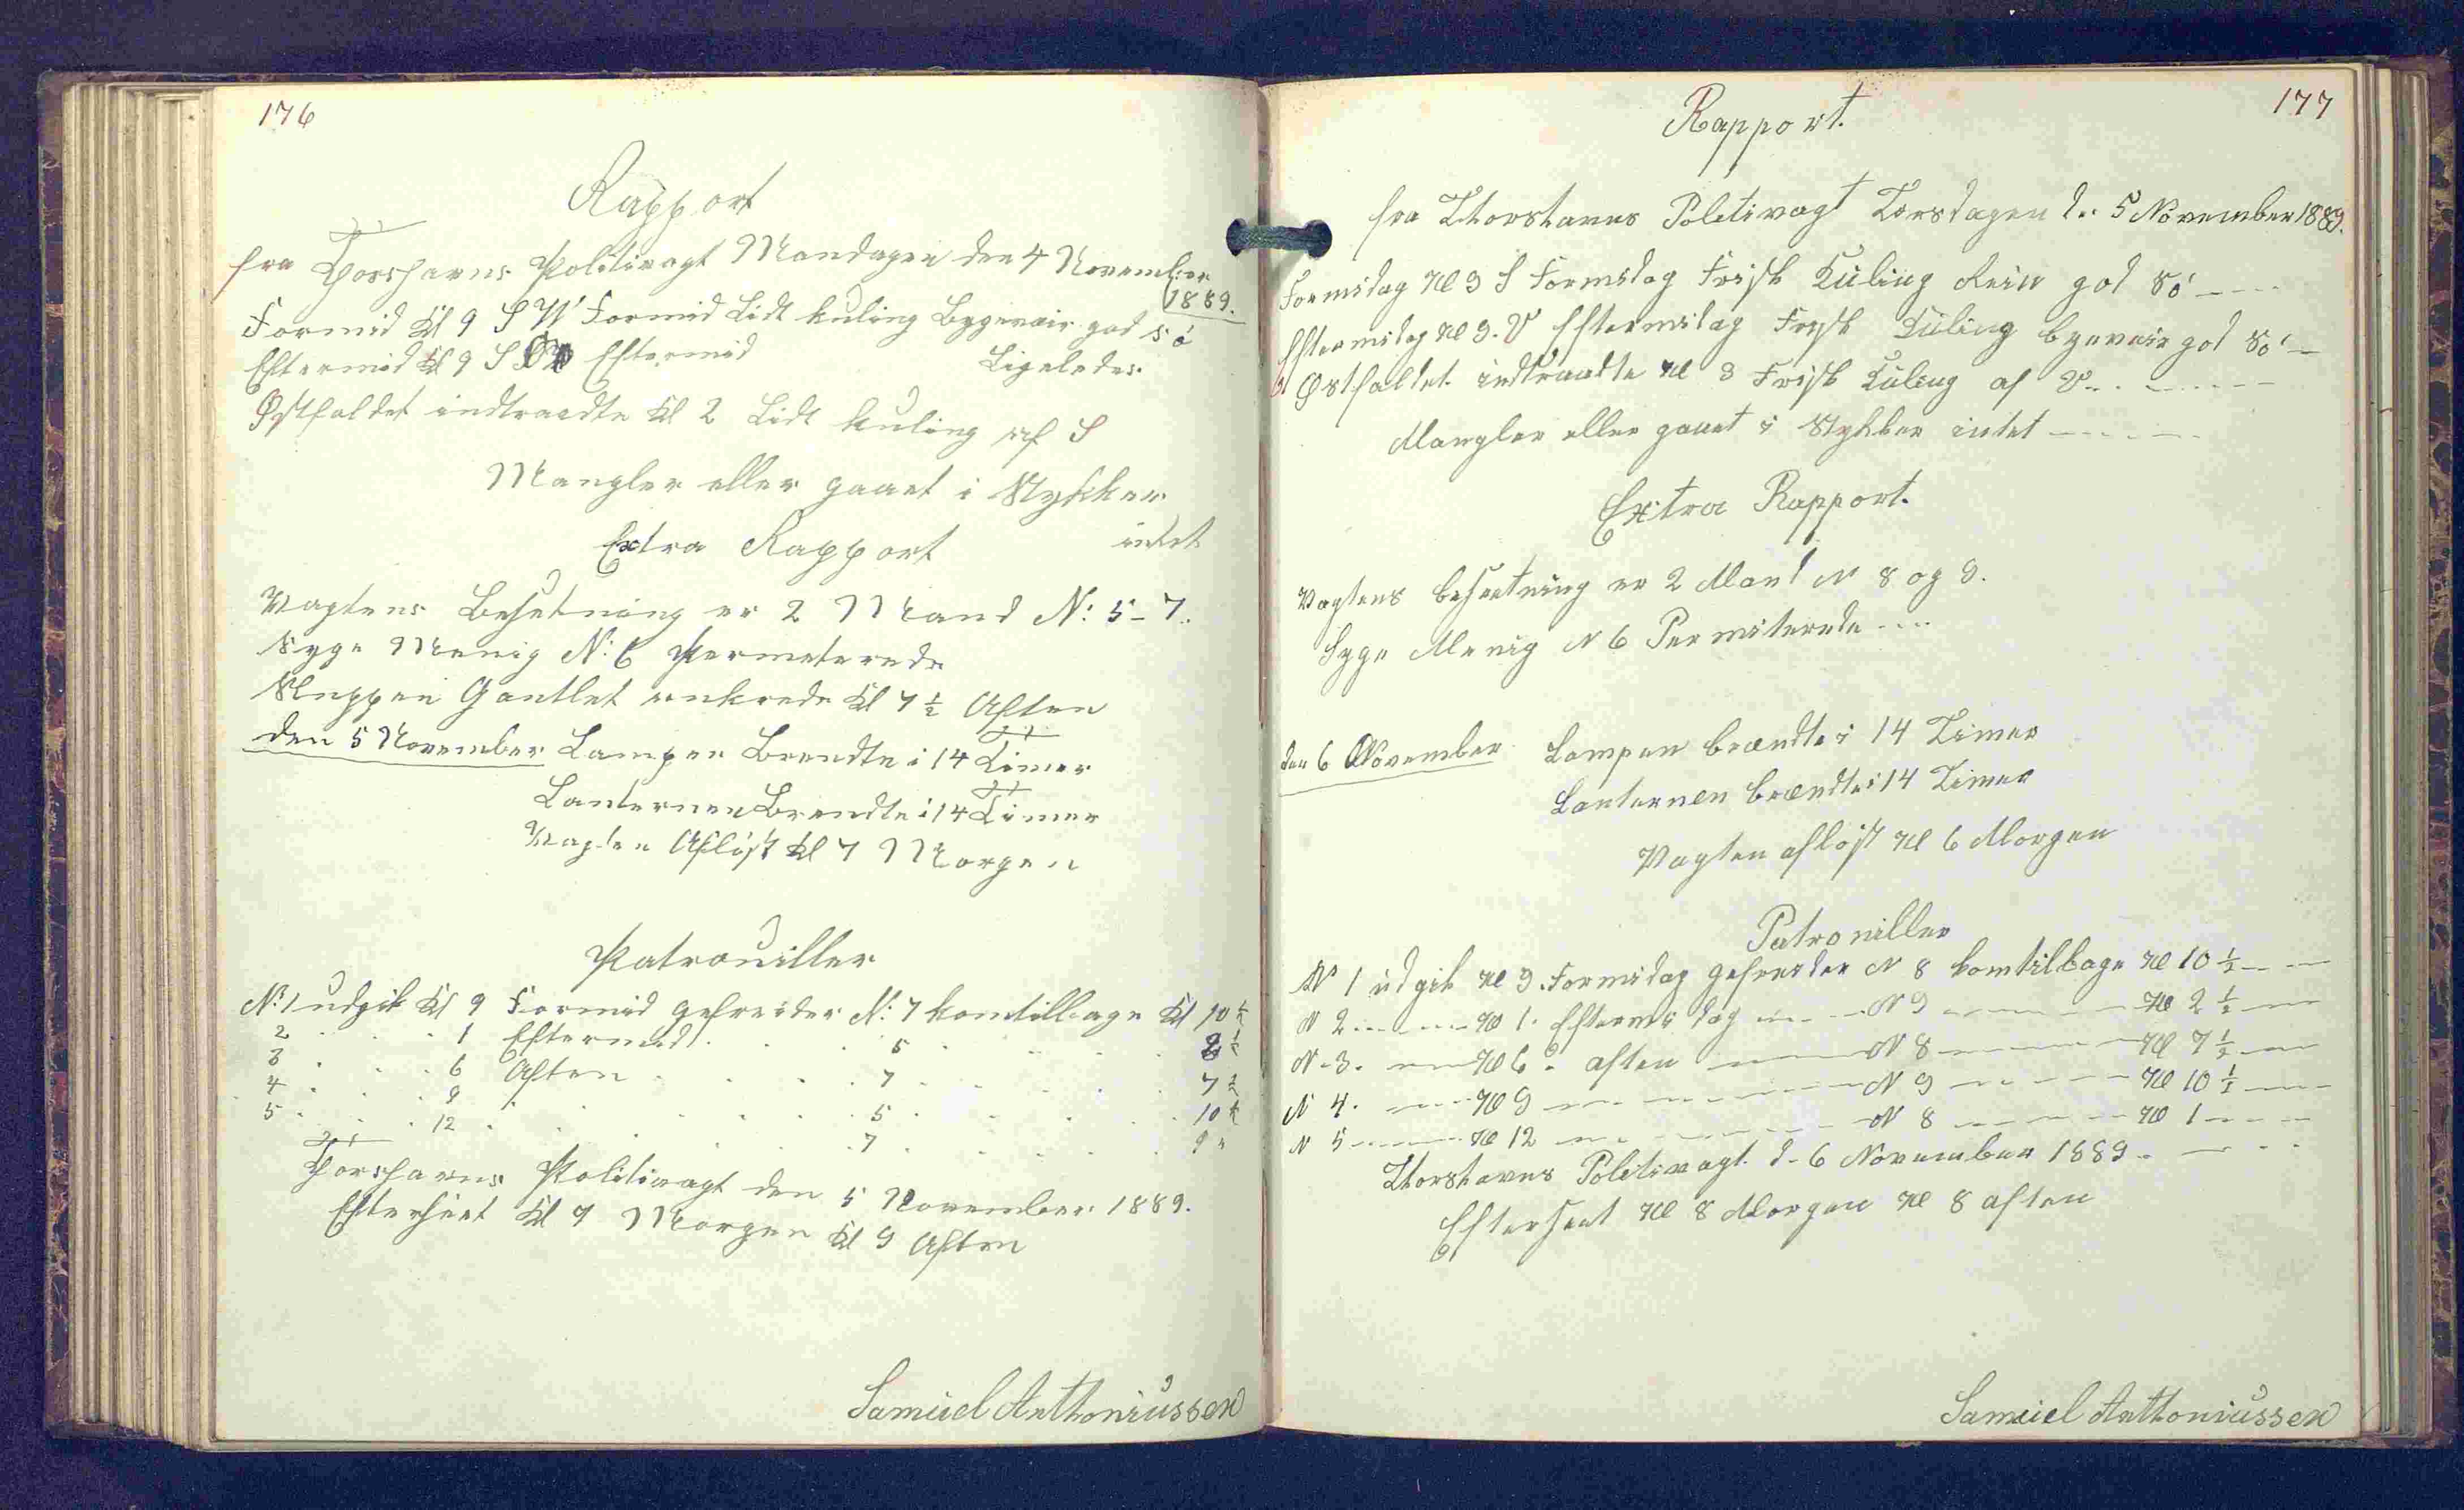 176
Rapport
fra Thorshavns Politivagt Mandagen den 4 November
1889.
Formid Kl 9 S W Formid Lidt kuling Bygevair god Sö
Eftermid Kl 9 S Eftermid Ligeledes
Østfaldet indtraadte Kl 2 Lidt kuling af S
Mangler eller gaaet i Stykker
intet
Extra Rapport
Vagtens Besetning er 2 Mand N: 5-7.
Syge Menig N: 6 Permeterede
Sluppen Gantlet ankrede Kl 7 ½ Aften
den 5 November Lampen Brendte i 14 Timer
Lanternen Brendte i 14 Timer
Vagten Afløst Kl 7 Morgen
Patrouiller
N: 1 udgik Kl 9 Formid gefreider N: 7 kom tilbage Kl 10 ½
2 . . . 1 Eftermid . . . 5 . . . 2 ½
3 . . . 6 Aften . . . 7 . . . 7 ½
4 . . . 9 . . . 5 . . . 10 ½
5 . . . 12 . . . 7 . . .
Thorshavns Politivagt den 5 November 1889.
Efterseet Kl 9 Morgen Kl 9 Aften
Samuel Anthoniussen
177
Rapport.
fra Thorshavns Politivagt Torsdagen d. 5 November 1889.
Formidag Kl 9 S Formidag Frisk Kuling Rein god Sö
Eftermidag Kl 9. V Eftermidag Frisk Kuling bygevair god Sö
Østfaldet indtraadte Kl 3 Frisk Kuling af V
Mangler eller gaaet i Stykker intet
Extra Rapport.
Vagtens besætning er 2 Mand N 8 og 9.
Syge Menig N 6 Permiterede
den 6 November Lampen brændte i 14 Timer
Lanternen brændte i 14 Timer
Vagten afløst Kl 6 Morgen
Patroniller
N 1 udgik Kl 9. Formidag gefreider N 8 kom tilbage Kl 10 ½
N 2 Kl 1. Eftermidag N 9 Kl 2 ½
N 3. Kl 6. aften N 8 Kl 7 ½
N 4. Kl 9 N 9 Kl 10 ½
N 5 Kl 12 N 8 Kl 1
Thorshavns Politivagt. d. 6 November 1889.
Efterseet Kl 8 Morgen Kl 8 aften
Samuel Anthoniussen